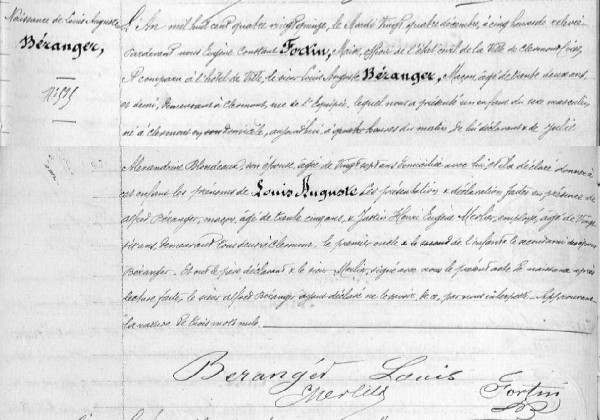 Naissance de Louis Auguste
Béranger,
L'An mil huit cent quatre vingt quinze, le Mardi Vingt quatre décembre, à cinq heures de relevée
Pardevant nous Eugène Constant Fortin, Maire, officier de l'état civil de la Ville de Clermont (Oise),
A comparu à l'hôtel de Ville, le sieur Louis Auguste Béranger, Maçon, âgé de trente deux ans
et demi, demeurant à Clermont, rue de l'Equipée, lequel nous a présenté un enfant du sexe masculin,
né à Clermont en son domicile, aujourd'hui, à quatre heures du matin, de lui déclarant & de Julie
Alexandrine Blondeaux, son épouse, âgée de Vingt sept ans, domiciliée avec lui, et il a déclaré donner à
cet enfant les prénoms de Louis Auguste Les présentation & déclaration faites en présence de
Alfred Béranger, maçon, âgé de trente cinq ans, & Justin Henri Eugène Merlin, employé, âgé de Vingt
six ans, demeurant tous deux à Clermont, le premier oncle & le second de l'enfant
Béranger. Et ont le père déclarant & le sieur Merlin, signé avec nous le présent acte de naissance après
lecture faite, le sieur Alfred Béranger ayant déclaré ne le savoir, de ce, par nous interpellé. Approuvant
la rature de trois mots nuls.
Beranger Louis
Merlin
Fortin